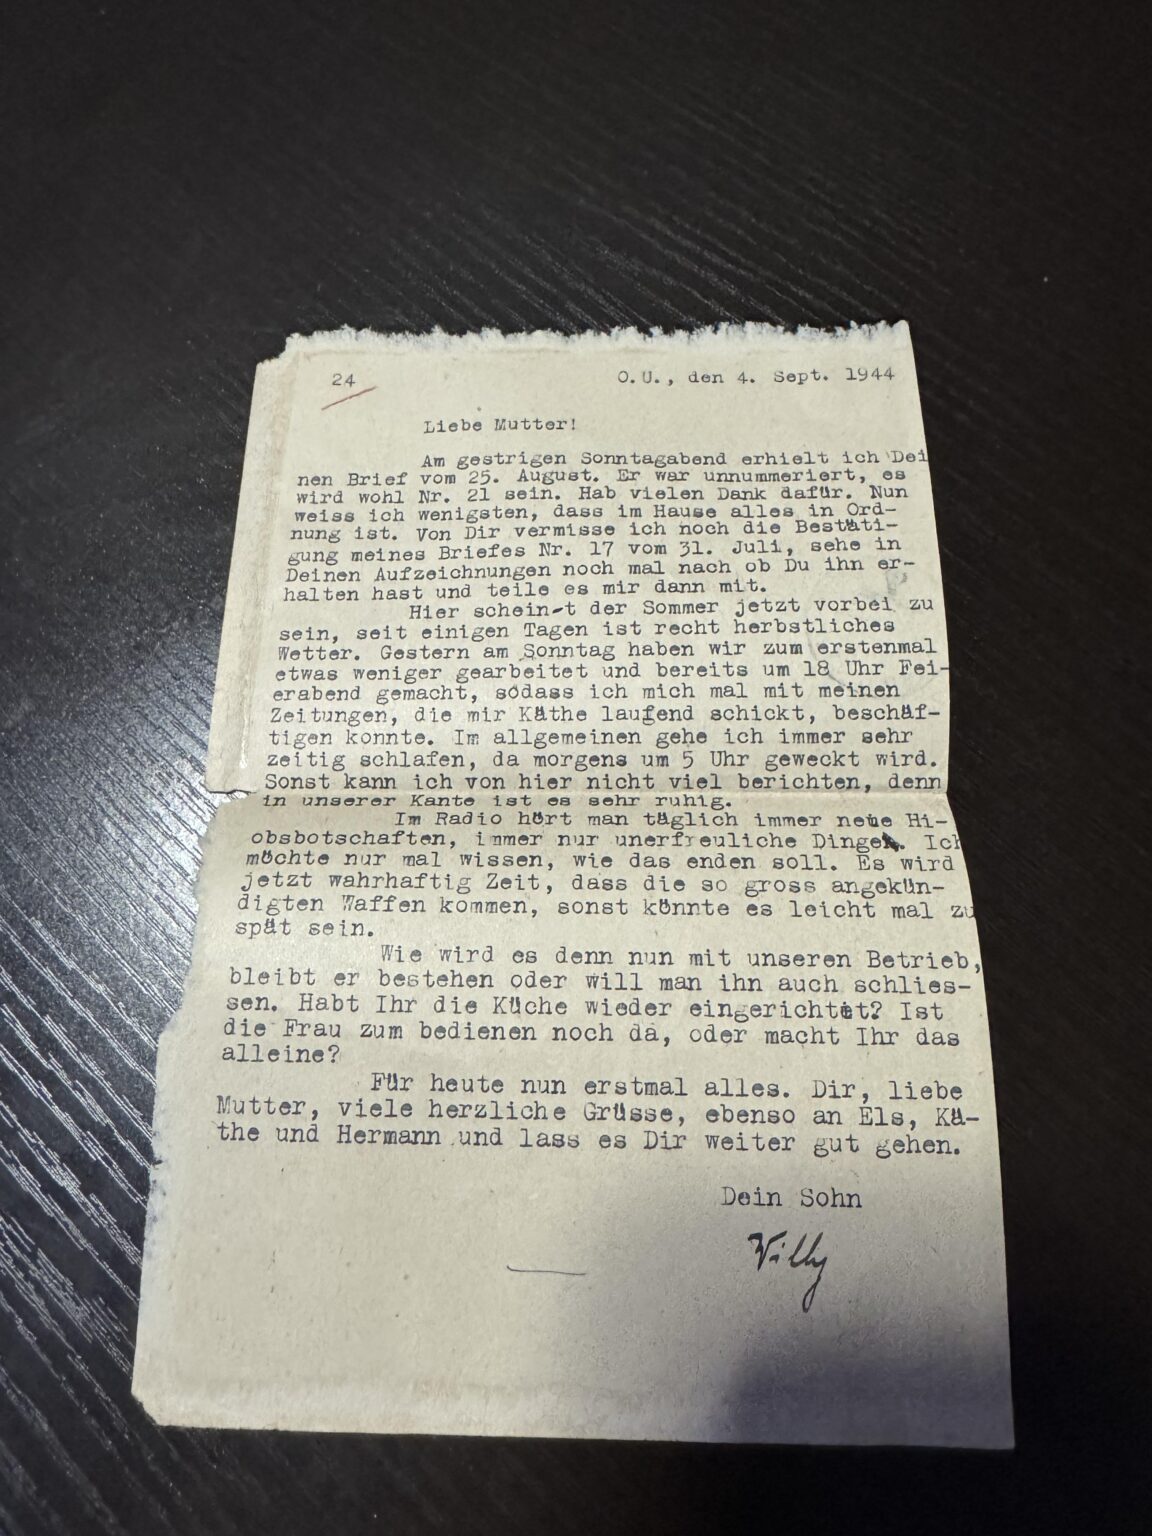 24 O.U., den 4. Sept. 1944
Liebe Mutter!
Am gestrigen Sonntagabend erhielt ich Dei
nen Brief vom 25. August. Er war unnummeriert, es
wird wohl Nr. 21 sein. Hab vielen Dank dafür. Nun
weiss ich wenigsten, dass im Hause alles in Ord-
nung ist. Von Dir vermisse ich noch die Bestäti-
gung meines Briefes Nr. 17 vom 31. Juli, sehe in
Deinen Aufzeichnungen noch mal nach ob Du ihn er-
halten hast und teile es mir dann mit.
Hier schein-t der Sommer jetzt vorbei zu
sein, seit einigen Tagen ist recht herbstliches
Wetter. Gestern am Sonntag haben wir zum erstenmal
etwas weniger gearbeitet und bereits um 18 Uhr Fei-
erabend gemacht, sodass ich mich mal mit meinen
Zeitungen, die mir Käthe laufend schickt, beschäf-
tigen konnte. Im allgemeinen gehe ich immer sehr
zeitig schlafen, da morgens um 5 Uhr geweckt wird.
Sonst kann ich von hier nicht viel berichten, denn
in unserer Kante ist es sehr ruhig.
Im Radio hört man täglich immer neue Hi-
obsbotschaften, immer nur unerfreuliche Dinge. Ich
möchte nur mal wissen, wie das enden soll. Es wird
jetzt wahrhaftig Zeit, dass die so gross angekün-
digten Waffen kommen, sonst könnte es leicht mal zu
spät sein.
Wie wird es denn nun mit unseren Betrieb,
bleibt er bestehen oder will man ihn auch schlies-
sen. Habt Ihr die Küche wieder eingerichtet? Ist
die Frau zum bedienen noch da, oder macht Ihr das
alleine?
Für heute nun erstmal alles. Dir, liebe
Mutter, viele herzliche Grüsse, ebenso an Els, Kä-
the und Hermann und lass es Dir weiter gut gehen.
Dein Sohn
Willy